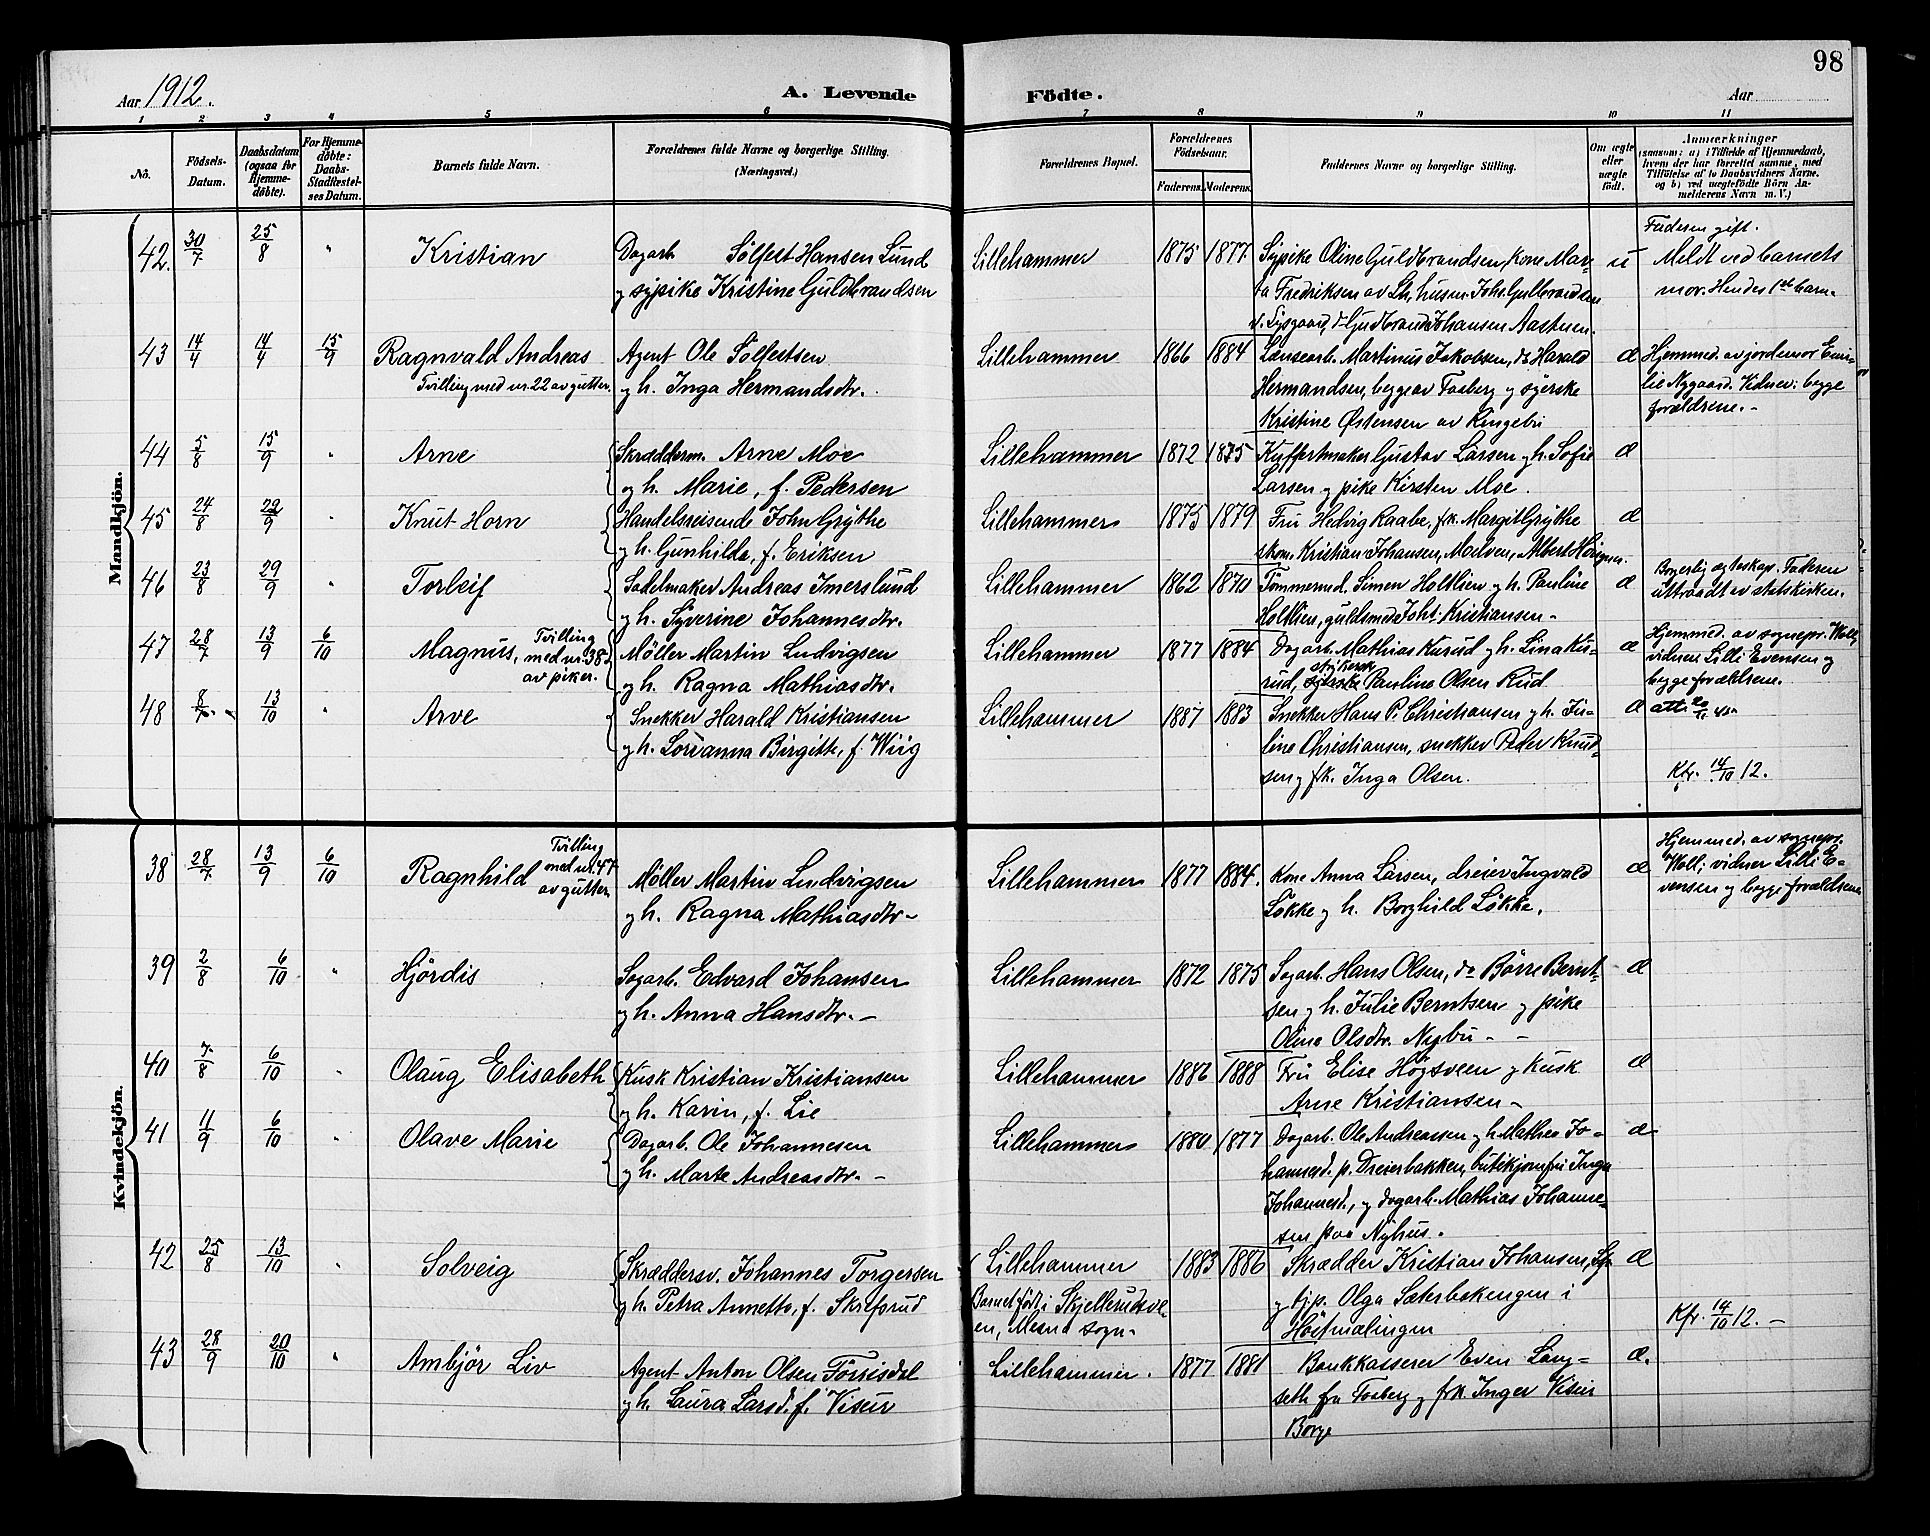 98
Aar 1912.
A. Levende
Födte.
Aar
1 2 3 4 5 6 7 8 9 10 11
No.
Födsels-Datum.
Daabsdatum (ogsaa for Hjemmedöbte).
For Hjemmedöbte: Daabs-Stadfæstelses Datum.
Barnets fulde Navn.
Forældrenes fulde Navne og borgerlige Stilling.
(Næringsvei.)
Forældrenes Bopæl.
Forældrenes Födselsaar.
Faderens. Moderens.
Faddernes Navne og borgerlige Stilling.
Om ægte eller uægte født.
Anmærkninger
(saasom: a) i Tilfælde af Hjemmedaab,
hvem der har forrettet samme, med
Tilföielse af to Daabsvidners Navne.
og b) ved uægtefödte Börn An-
melderens Navn m. V.)
Mandkjön.
42. 30/7 25/8 " Kristian
Dagarb. Sölfest Hansen Lund
og sypike Kristine Guldbrandsen
Lillehammer 1875 1877
Sypike Oline Guldbrandsen, kone Mar-
ta Fredriksen av Lh, husm. Johs. Gulbrandsen
v. Sysgaard, d Gudbrand Johansen Aastuen.
u
Faderen gift.
Meldt ved barnets
mor. Hendes 1ste barn.
43 14/4 14/4 15/9 Ragnvald Andreas
Tvilling med nr. 22 av gutter.
Agent Ole Sølfestsen
og h. Inga Hermandsdtr.
Lillehammer 1866 1884
Lensearb. Martinus Jakobsen, do Harald
Hermandsen, begge av Faaberg og syerske
Kristine Østensen av Ringebu
æ
Hjemmed. av jordemor Emi-
lie Nygaard. Vidner: begge
forældrene.-
44 5/8 15/9 " Arne
Skrædderm. Arne Moe
og h. Marie, f. Pedersen
Lillehammer 1872 1875
Kuffertmaker Gustav Larsen og h. Sofie
Larsen og pike Kirsten Moe.
æ
45 24/8 29/9 " Knut Horn
Handelsreisende John Grÿthe
og h. Gunhilda, f. Eriksen
Lillehammer 1875 1879
Fru Hedvig Raabe, frk. Margit Grÿthe
skom. Kristian Johansen, Moelven, Albert
æ
46 23/8 29/9 " Torleif
Sadelmaker Andreas Imerslund
og h. Syverine Johannesdtr.
Lillehammer 1862 1870
Tømmermd. Simen Holtlien og h. Pauline
Holtlien, guldsmed Johs. Kristiansen-
æ
Borgerlig ægteskap. Faderen
uttraadt av statskirken.
47 28/7 13/9 6/10 Magnus, Tvilling
med nr. 38
av piker.
Møller Martin Ludvigsen
og h. Ragna Mathiasdtr.
Lillehammer 1877 1884
Dagarb. Mathias Kurud og h. Lina Ku-
rud, Pauline Olsen Rud
æ
Hjemmed. av sognepr. Woll,
vidner Lilli Evensen og
begge forældrene.
48 8/7 13/10 " Arve
Snekker Harald Kristiansen
og h. Lovianna Birgitte, f. Wiig
Lillehammer 1887 1883
Snekker Hans P. Christiansen og h. Ju-
line Christiansen, snekker Peder Knud-
sen og frk. Inga Olsen.
æ
Kfr. 14/10 12.
Kvindekjön.
38 28/7 13/9 6/10 Ragnhild Tvilling
med nr. 47
av gutter
Møller Martin Ludvigsen
og h. Ragna Mathiasdtr-
Lillehammer 1877 1884.
Kone Anna Larsen, dreier Ingvald
Løkke og h. Borghild Løkke.
æ
Hjemmed. av sognepr.
Woll; vidner Lilli E-
vensen og begge forældrene
39 2/8 6/10 " Hjørdis
Sagarb. Edvard Johansen
og h. Anna Hansdtr.-
Lillehammer 1872 1875
Sagarb. Hans Olsen, do Børre Bernt-
sen og h. Julie Berntsen og pike
Oline Olsdtr. Nybu- -
æ
40 7/8 6/10 " Olaug Elisabeth
Kusk Kristian Kristiansen
og h. Karin, f. Lie
Lillehammer 1886 1888
Fru Elise Høgsveen og kusk
Arne Kristiansen-
æ
41 11/9 6/10 " Olave Marie
Dagarb. Ole Johannesen
og h. Marte Andreasdtr.-
Lillehammer 1880 1877
Dagarb. Ole Andreassen og h. Mathea Jo-
hannesd. p. Dreierbakken, butikjomfru Inga
Johannesd., og dagarb. Mathias Johanne-
sen paa Nyhus.
æ
42 25/8 13/10 " Solveig
Skræddersv. Johannes Torgersen
og h. Petra Annette, f. Skrefsrud
Lillehammer
Barnet født i Skjellerudsve-
en, Mesna sogn-
1883 1886
Skrædder Kristian Johansen,
og tjp. Olga Sæterbakengen i
Høitmælingen
æ
Kfr. 14/10 12.-
43 28/9 20/10 " Ambjør Liv
Agent Anton Olsen Tørrisdal
og h. Laura Larsd. f. Visur
Lillehammer. 1877 1881
Bankkasserer Even Lang-
seth fra Faaberg og frk. Inger Visur
Borge
æ.